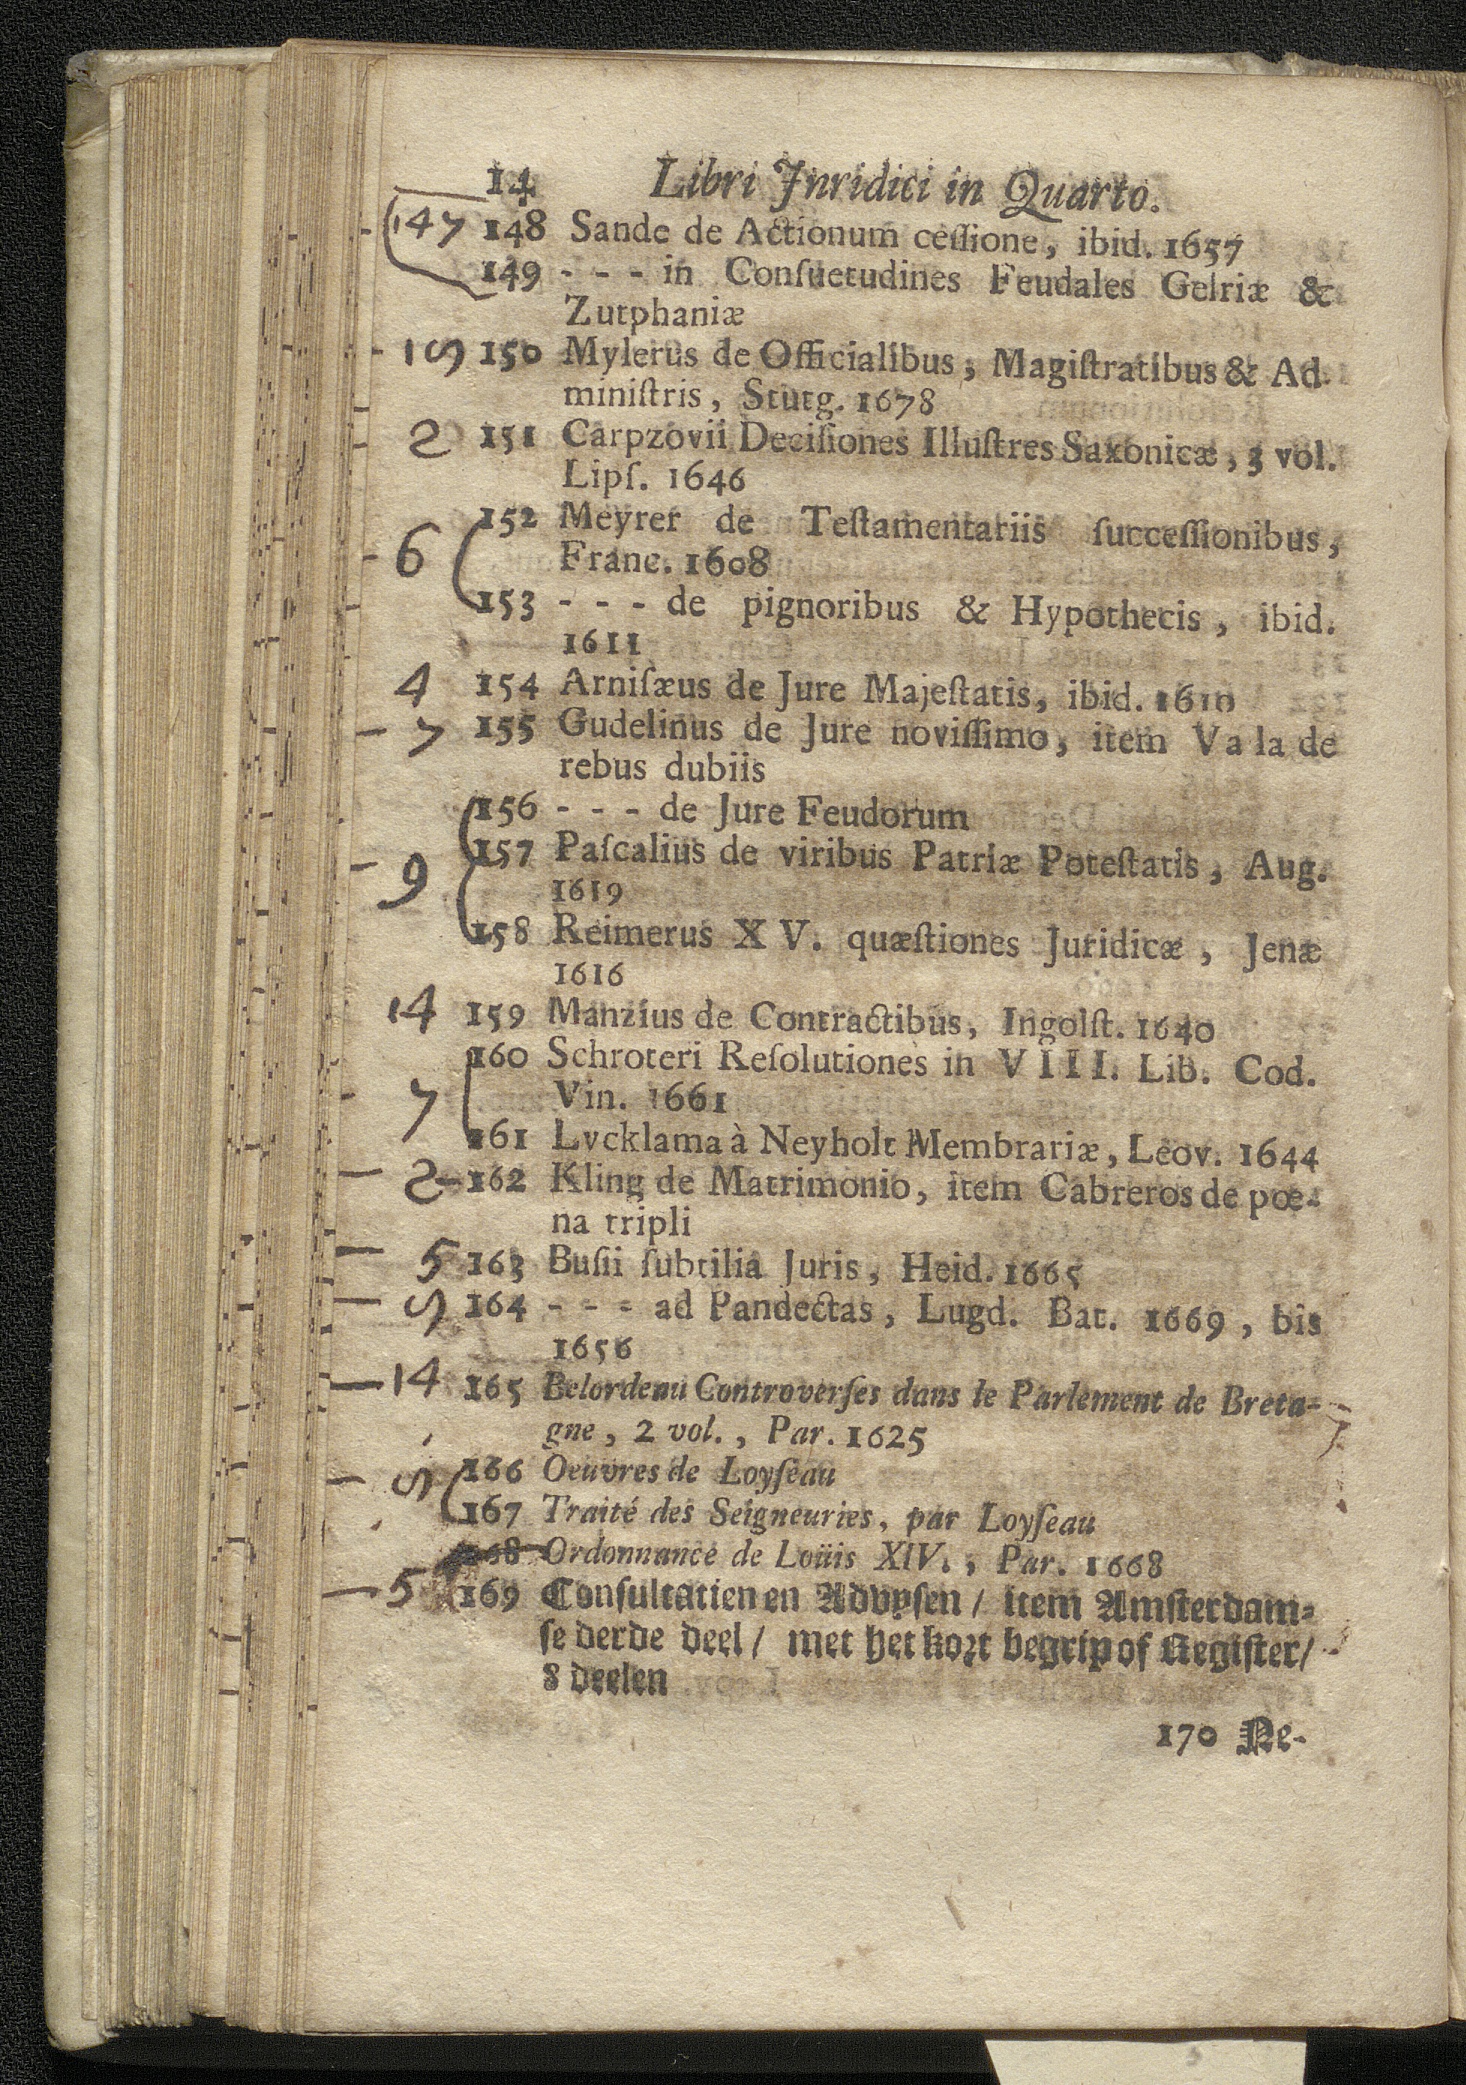 14 Libri Jnridici in Quarto.
147 148 Sande de Actionum ceſſione, ibid. 1657
149 - - - in Conſuetudines Feudales Gelriæ &
Zutphaniæ
150 Mylerus de Officialibus, Magiſtratibus & Ad
miniſtris, Stutg. 1678
2 151 Carpzovii Deciſiones Illuſtres Saxonicæ, 3 vol.
Lipſ. 1646
152 Meyrer de Teſtamentariis ſucceſſionibus,
6 Franc. 1608
153 - - - de pignoribus & Hypothecis, ibid.
1611
4 154 Arniſæus de Jure Majeſtatis, ibid. 1610
- 7 155 Gudelinus de Jure noviſſimo, item Va la de
rebus dubiis
156 - - - de Jure Feudorum
- 9 157 Paſcalius de viribus Patriæ Poteſtatis, Aug.
1619
158 Reimerus X V. quæſtiones Juridicæ, Jenæ
1616
14 159 Manzius de Contractibus, Ingolſt. 1640
160 Schroteri Reſolutiones in VIII. Lib. Cod.
7 Vin. 1661
161 Lvcklama à Neyholt Membrariæ, Leov. 1644
2 - 162 Kling de Matrimonio, item Cabreros de pœ-
na tripli
- 5 163 Buſii ſubtilia Juris, Heid. 1665
164 - - - ad Pandectas, Lugd. Bat. 1669, bis
1656
- 14 165 Belordeau Controverſes dans le Parlement de Breta-
gne, 2 vol., Par. 1625
166 Oeuvres de Loyſeau
167 Traité des Seigneuries, par Loyſeau
168 Ordonnance de Loüis XIV., Par. 1668
- 5 169 Conſultatien en Advyſen / item Amſterdam-
ſe derde deel / met het kort begrip of Regiſter /
8 deelen
170 Ne-